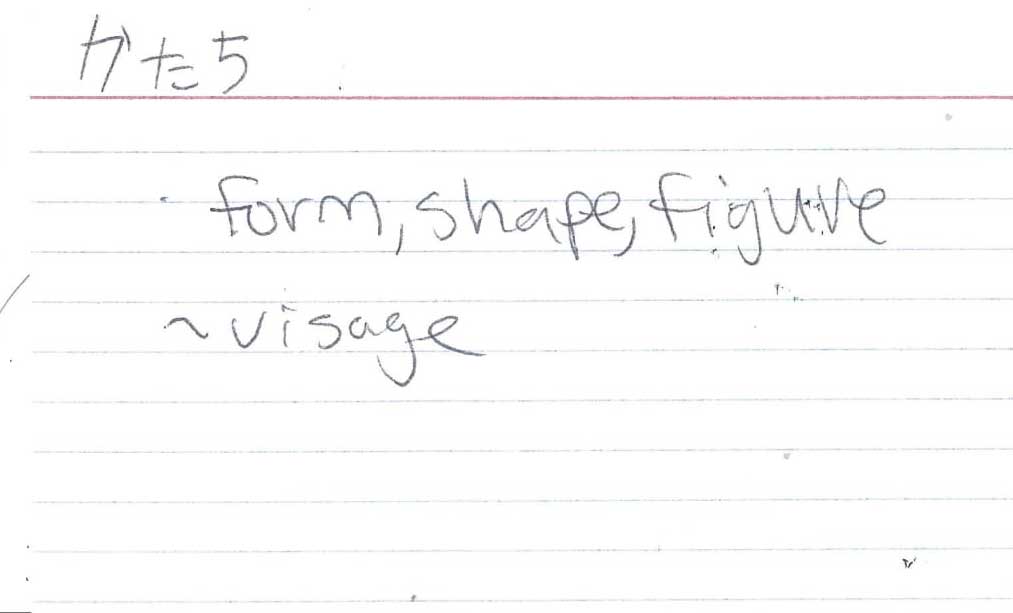 かたち
- form, shape, figure
~ visage